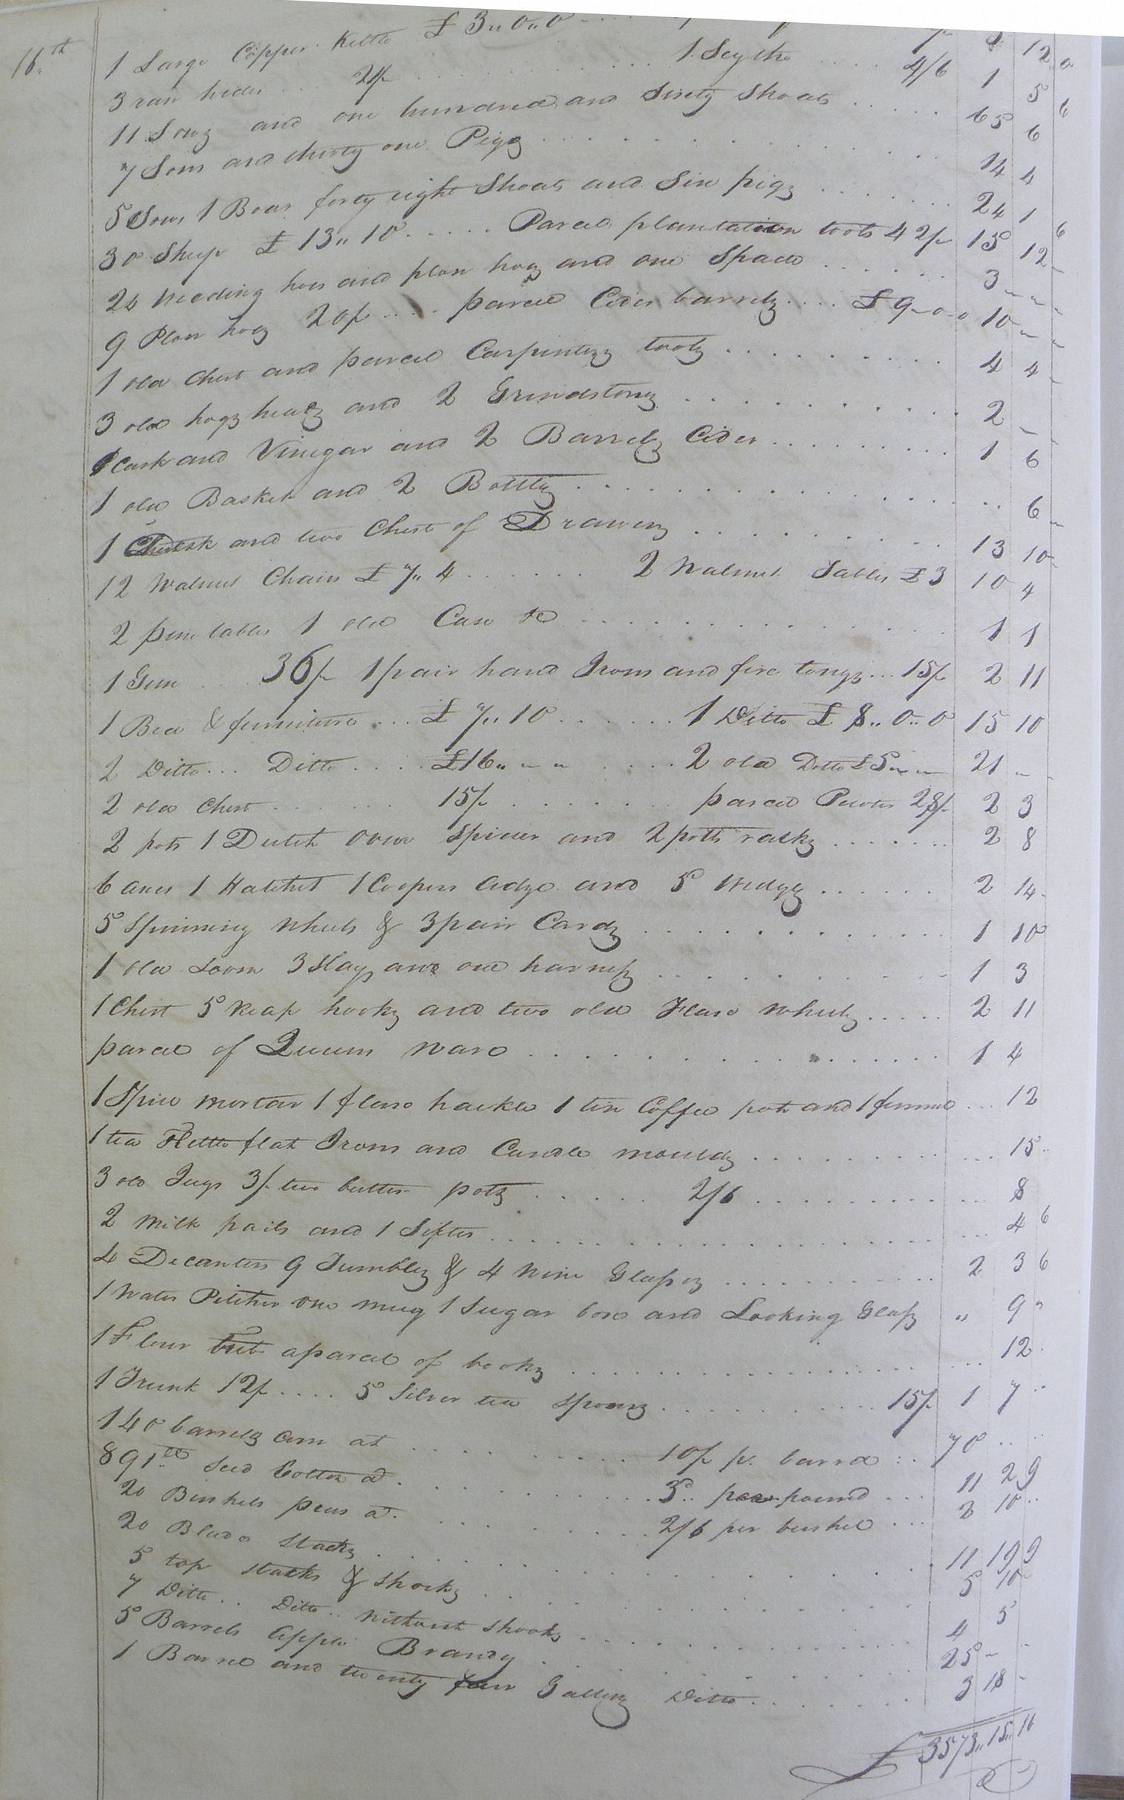 16th
1 Large Copper Kettle £ 3,,0,,0 12 0
3 raw hides 24/ 1 Scythe 4/6 1 8 6
11 Sows and one hundred and Sixty Shoats 65 6
7 Sows and thirty one Pigs 14 4
5 Sows 1 Boar forty eight Shoats and Six pigs 24 1 6
30 Sheep £ 13,,10 Parcel plantation tools 42/ 15 12
20 Weeding hoes and plow hoes and one Spade 3
9 Plow hoes 20/ parcel Cider barrels £ 9-0-0 10
1 old Chest and parcel Carpenters tools 4 4
3 old hogsheads and 2 Grindstones 2
1 Cask and Vinegar and 2 Barrels Cider 1 6
1 old Basket and 2 Bottles 6
1 Desk and two Chest of Drawers 13 10
12 Walnut Chairs £ 7,,4 2 Walnut Tables £3 10 4
2 pine tables 1 old Case &c 1 1
1 Gun 36/ 1 pair hand Irons and fire tongs 15/ 2 11
1 Bed & furniture £ 7,,10 1 Ditto £ 8,,0,,0 15 10
2 Ditto Ditto £16,, 2 old Ditto £5 21
2 old Chest 15/ parcel Pewter 28/ 2 3
2 pots 1 Dutch oven Spider and 2 pott racks 2 8
6 axes 1 Hatchet 1 Coopers Adze and 5 Wedges 2 14
5 Spinning Wheels & 3 pair Cards 1 10
1 old Loom 3 Slays and one harness 1 3
1 Chest 5 Reap hooks and two old Flax Wheels 2 11
parcel of Queens Ware 1 4
1 Spice mortar 1 flax hackle 1 tin Coffee pot and 1 funnel 12
1 tea Kettle flat Irons and Candle moulds 15
3 old Jugs 3/ two butter pots 2/6 8
2 milk pails and 1 Sifter 4 6
4 Decanters 9 Tumbles & 4 Wine Glasses 2 3 6
1 Water Pitcher one mug 1 Sugar box and Looking Glass 9
1 Flour aparcel of books 12
1 Trunk 12/ 5 Silver tea Spoons 15/ 1 7
140 barrels Corn at 10/ p. barrel 70
891 lb Seed Cotton a 3 per pound 11 2 9
20 Bushels peas a 2/6 per bushel 2 10
20 Blade Stacks 11 19 9
5 top Stacks & Shocks 5 10
7 Ditto Ditto without Shocks 4 5
5 Barrels Apple Brandy 25
1 Barrel and twenty four Gallons Ditto 3 18
£3573,,15,,16